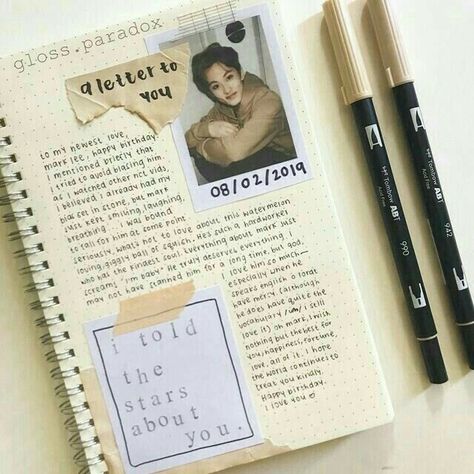 gloss.paradox
a letter to
you
08/02/2019
to my newest love,
mark lee, happy birthday
I mentioned briefly that
I tried to avoid biasing him
as I watched other nct vids,
I believed I already had my
bias set in stone, but mark
just kept smiling, laughing,
breathing... I was bound
to fall for him at some point.
seriously, what's not to love about this watermelon
loving, giggly ball of squish. He's such a hardworker
who has the kindest soul. Everything about mark just
screams "I'm baby". He truly deserves everything. I
may not have stanned him for a long time but god,
I love him so much—
especially when he
speaks english o lordt
have mercy (although
he does have quite the
vocabulary /um/ i still
love it) oh mark, I wish
nothing but the best for
you, happiness, fortune,
love, all of it. I hope
the world continues to
treat you kindly.
Happy birthday.
I love you
i told
the
stars
about
you.
Tombow ABT
990
Tombow ABT
942